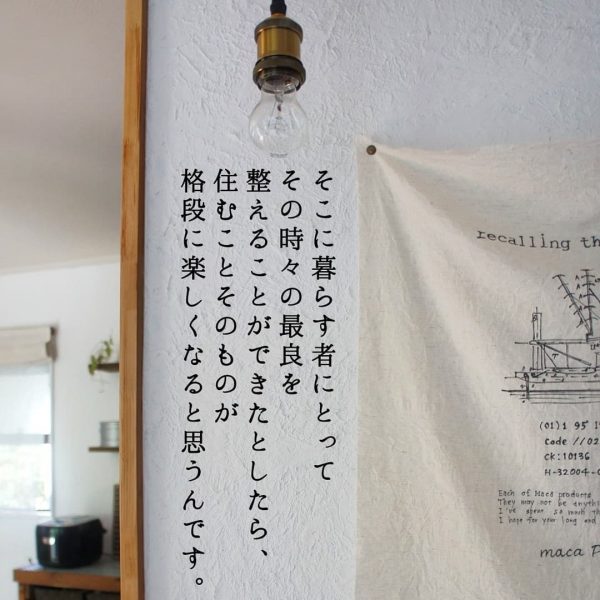 そこに暮らす者にとって
その時々の最良を
整えることができたとしたら、
住むことそのものが
格段に楽しくなると思うんです。
recalling th
(01)1 95°
Code // 02
CK:10136
H-32004-
Each of Maca products
They may not be anyth
I've spent so much th
I hope for your long and
maca P